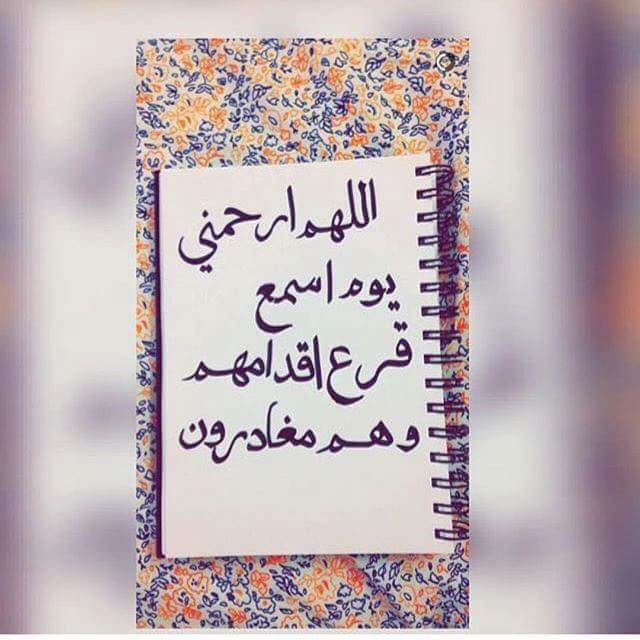 اللهم ارحمني
يوم اسمع
قرع اقدامهم
وهم مغادرون